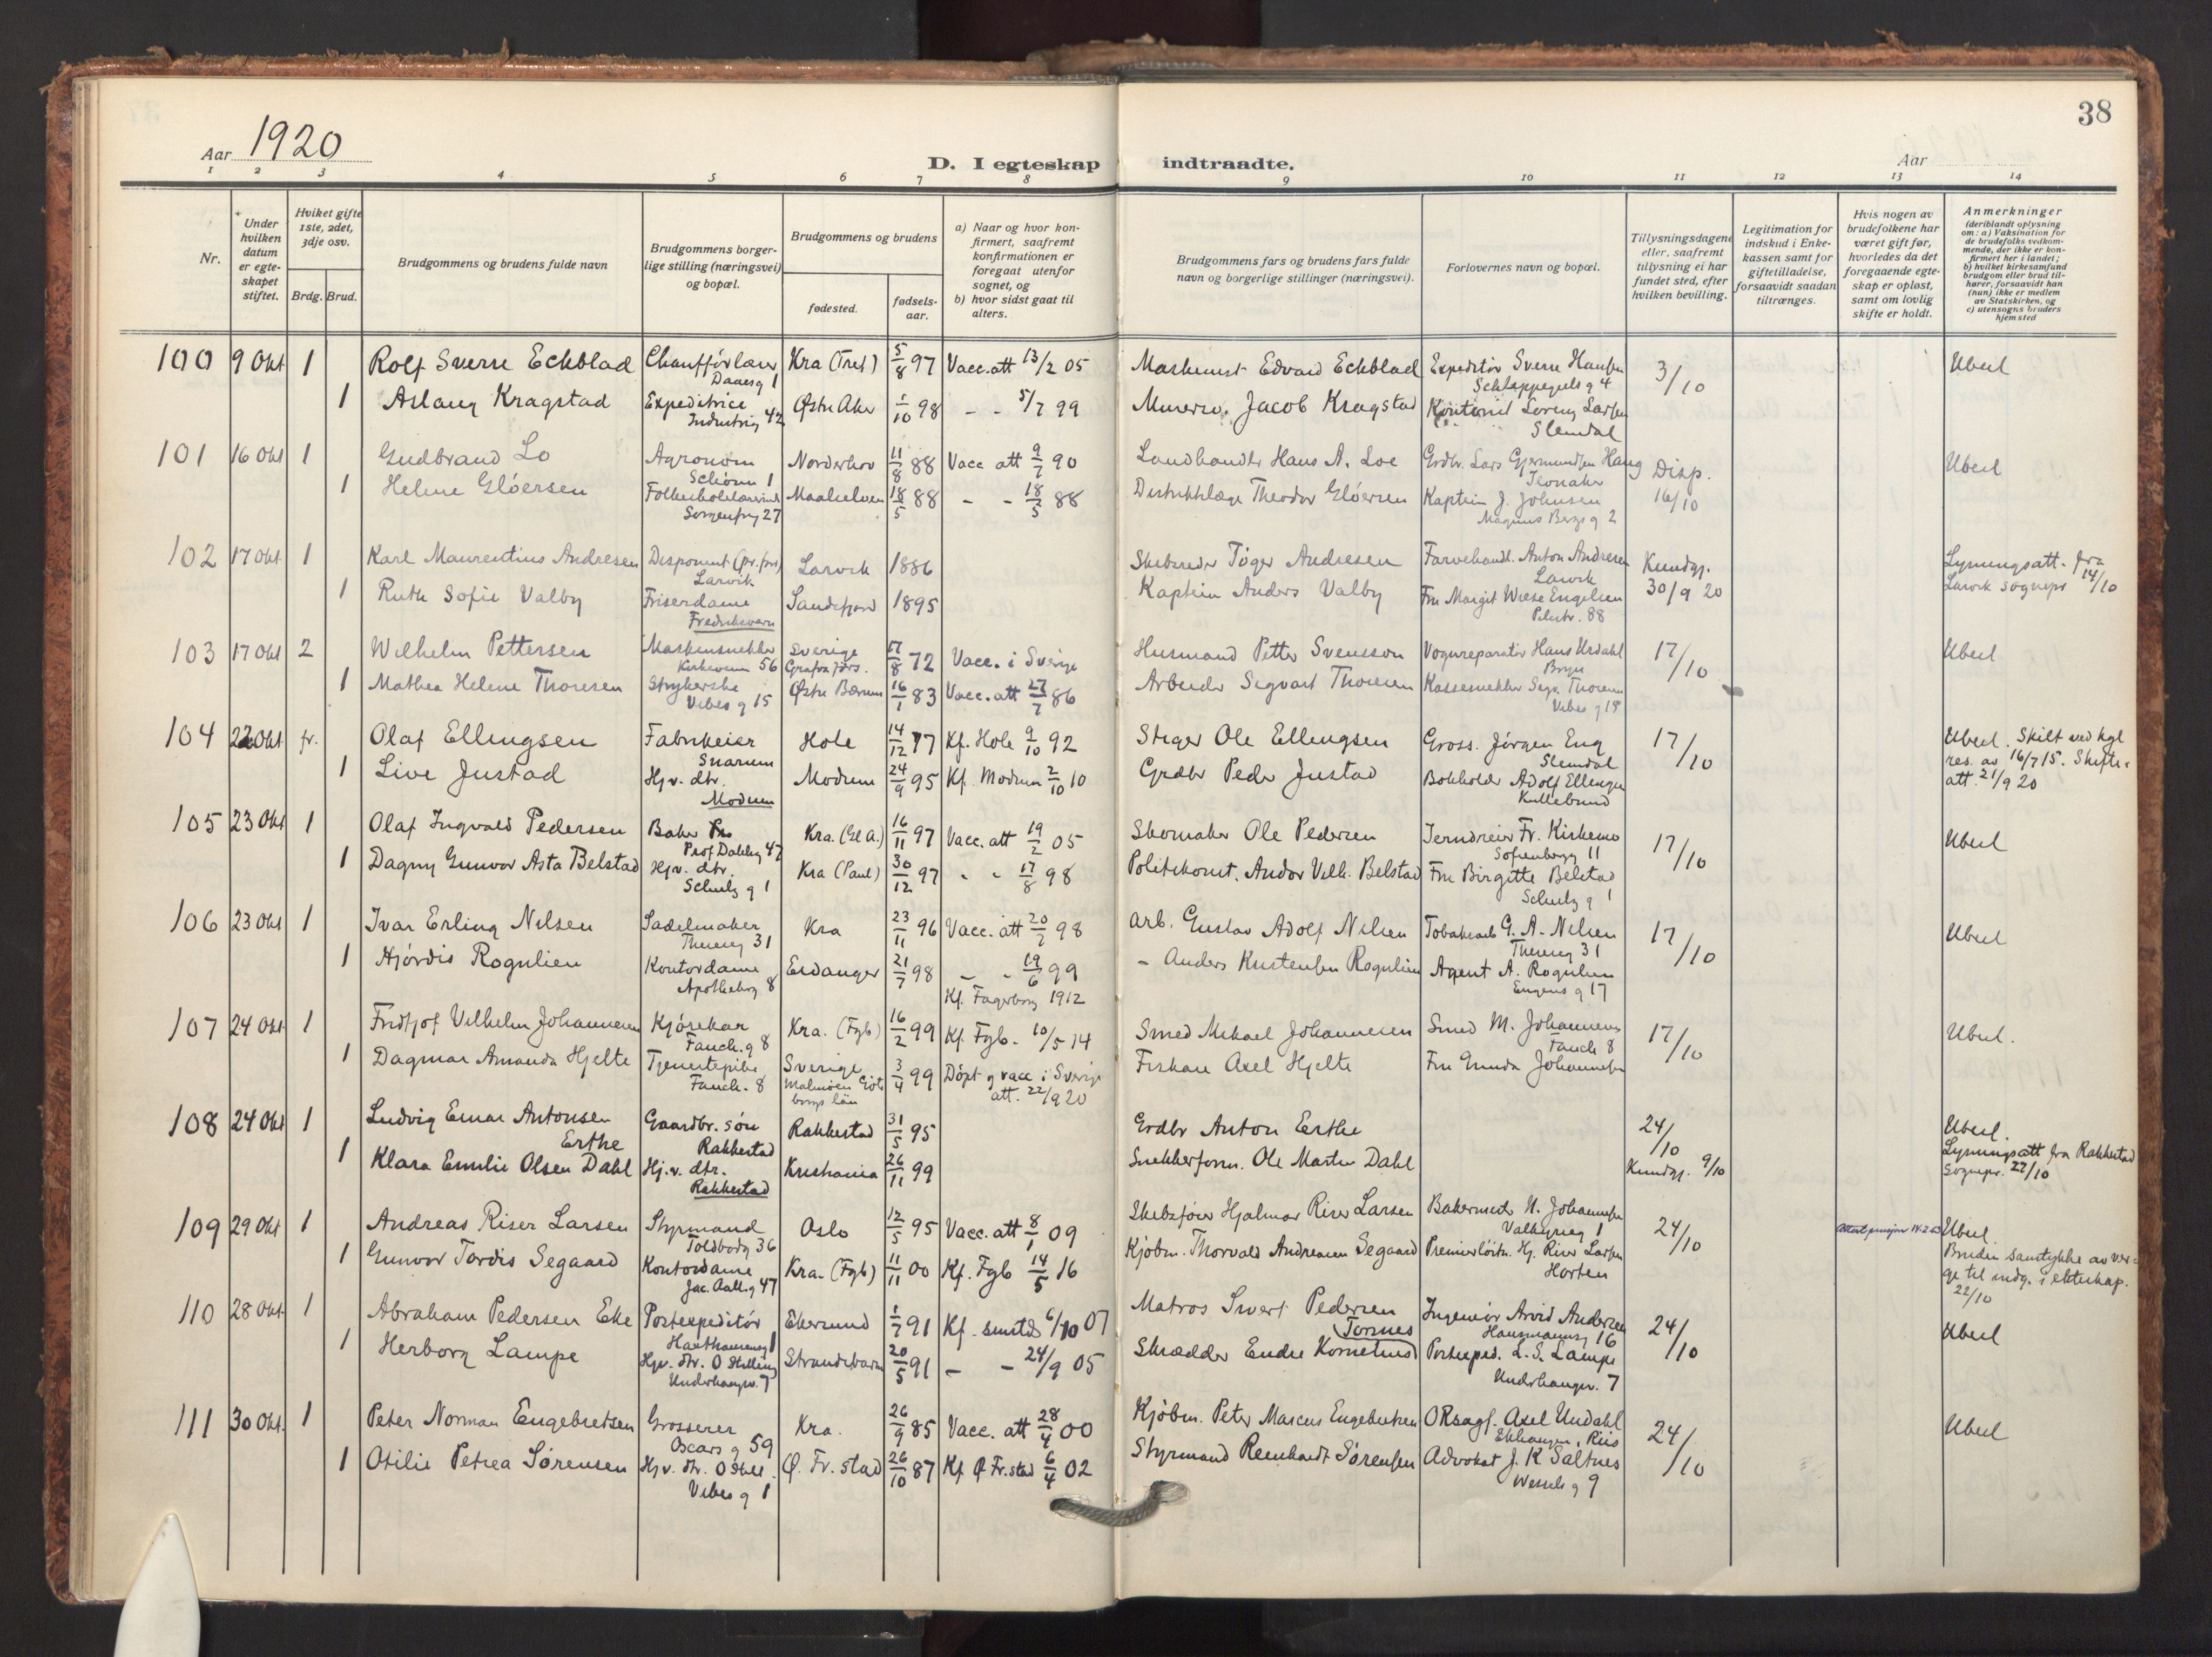 38
Aar 1920
D. I egteskap indtraadte.
Aar
1 2 3 4 5 6 7 8 9 10 11 12 13 14
Nr.
Under hvilken datum er egteskapet stiftet.
Hviket gifte 1ste, 2det, 3dje osv.
Brdg. Brud.
Brudgommens og brudens fulde navn
Brudgommens borgerlige stilling (næringsvei) og bopæl.
Brudgommens og brudens
fødested.
fødselsaar.
a) Naar og hvor konfirmert, saafremt konfirmationen er foregaat utenfor sognet, og
b) hvor sidst gaat til alters.
Brudgommens fars og brudens fars fulde navn og borgerlige stillinger (næringsvei).
Forlovernes navn og bopæl.
Tillysningsdagene eller, saafremt tillysning ei har fundet sted, efter hvilken bevilling.
Legitimation for indskud i Enkekassen samt for giftetilladelse, forsaavidt saadan tiltrænges.
Hvis nogen av brudefolkene har været gift før, hvorledes da det foregaaende egteskap er opløst, samt om lovlig skifte er holdt.
Anmerkninger (deriblandt oplysning om: a) Vaksination for de brudefolks vedkommende, der ikke er konfirmert her i landet; b) hvilket kirkesamfund brudgom eller brud tilhører, forsaavidt han (hun) ikke er medlem av Statskirken, og c) utensogns bruders hjemsted
100 9 Okt 1 Rolf Sverre Eckblad Chaufførlærer Kra (Tref) 5/8 97 Vacc. att 13/2 05 Maskinist Edvard Eckblad Expeditør Sverre Hansen 3/10 Ubesl
Daaesg 1 Schleppegrels g 4
1 Aslaug Kragstad Expeditrice Østre Aker 1/10 98 - - 5/7 99 Murersv. Jacob Kragstad Kontorist Loreng Larsen
Industrig 42 Slemdal
101 16 Okt 1 Gudbrand Lo Agronom Norderhov 11/8 88 Vacc att 9/7 90 Landhandler Hans A. Loe Grdbr. Lars Gjermundsen Haug Disp. 16/10 Ubesl
Schønn 1
1 Helene Gløersen Maalselven 18/5 88 - - 18/5 88 Distriktslæge Theodor Gløersen Kaptein J. Johnsen
Sorgenfrig 27 Magnus Bergs g 2
102 17 Okt 1 Karl Maurentius Andresen Disponent Larvik 1886 Skibsreder Tøger Andresen Farvehandl. Anton Andresen Kundgj. 30/9 20 Lysningsatt. fra
Larvik Larvik Larvik sognepr 14/10
1 Ruth Sofie Valby Friserdame Sandefjord 1895 Kaptein Anders Valby Fru Margit Wiese Engelsen
Fredriksværn Pilestr. 88
103 17 Okt 2 Wilhelm Pettersen Maskinsnekker Sverige 17/8 72 Vacc. i Sverige Husmand Petter Svensson Vognreparatør Hans Urdahl 17/10 Ubesl
Kirkeveien 56
1 Mathea Helene Thoresen Strykerske Østre Bærum 16/1 83 Vacc. att 27/7 86 Arbeider Sigvart Thoresen Kassesnekker Sigv. Thoresen
Vibes g 15 Vibes g 15
104 22 Okt fr. Olaf Ellingsen Fabrikeier Hole 14/12 77 Kf. Hole 9/10 92 Stiger Ole Ellingsen Gross. Jørgen Eng 17/10 Ubesl. Skilt ved kgl
Snarum Slemdal res. av 16/7 15. Skifte-
1 Live Justad Hj.v. dtr. Modum 24/9 95 Kf. Modum 2/10 10 Grdbr Peder Justad Bokholder Adolf Ellingsen att. 21/9 20
Modum Kullebund
105 23 Okt 1 Olaf Ingvald Pedersen Baker Kra. (Gl A.) 16/11 97 Vacc. att 19/2 05 Skomaker Ole Pedersen Jerndreier Fr. Kirkemo 17/10 Ubesl
Prof Dahlsg 47 Sofienbergg 11
1 Dagny Gunvor Asta Belstad Hj.v. dtr. Kra (Paul) 30/12 97 - - 17/8 98 Politikonst. Andor Vilh. Belstad Fru Birgitte Belstad
Schultz g 1 Schultz g 1
106 23 Okt 1 Ivar Erling Nilsen Sadelmaker Kra 23/11 96 Vacc. att 20/2 98 arb. Gustav Adolf Nilsen Tobakarb G. A. Nilsen 17/10 Ubesl
Thereseg 31 Thereseg 31
1 Hjørdis Rognlien Kontordame Eidanger 21/7 98 - - 19/6 99 - Anders Kristensen Rognlien Agent A. Rognlien
Apothekerg 8 Kf. Fagerborg 1912 Eugens g 17
107 24 Okt 1 Fridtjof Vilhelm Johannesen Kjørekar Kra. (Fgb) 16/2 99 Kf. Fgb. 10/5 14 Smed Mikael Johannesen Smed M. Johannesen 17/10 Ubesl.
Fauch. g 8 Fauch 8
1 Dagmar Amanda Hjelte Tjenestepike Sverige 3/4 99 Døpt og vacc i Sverige Fiskare Axel Hjelte Fru Gunda Johannesen
Fauch. 8 Malmøen Göteborgs län att. 22/9 20
108 24 Okt 1 Ludvig Einar Antonsen Gaardbr. søn Rakkestad 31/5 95 Grdbr Anton Erthe 24/10 Ubesl.
Erthe Rakkestad Lysningsatt fra Rakkestad
1 Klara Emilie Olsen Dahl Hj.v. dtr. Kristiania 26/11 99 Snekkerform. Ole Martin Dahl Kundgj. 9/10 Sognepr. 22/10
Rakkestad
109 29 Okt 1 Andreas Riser Larsen Styrmand Oslo 12/5 95 Vacc. att 8/1 09 Skibsfører Hjalmar Riser Larsen Bakermester N. Johannesen 24/10 Ubesl.
Toldbodg 36 Valkyrieg 1 Bruden samtykke av ver-
1 Gunvor Tordis Segaard Kontordame Kra. (Fgb) 11/11 00 Kf. Fgb 14/5 16 Kjøbm. Thorvald Andreasen Segaard Premierløitn. Hj. Riser Larsen ge til indg. i ekteskap.
Jac. Aalls g 47 Horten 22/10
110 28 Okt. 1 Abraham Pedersen Eke Postexpeditør Ekersund 1/7 91 Kf. smstds 6/10 07 Matros Sivert Pedersen Ingeniør Arvid Andersen 24/10 Ubesl
Tonnes Hausmannsg 16
1 Herborg Lampe Hjv. dtr. O Stilling Strandebarm 20/5 91 - - 24/9 05 Skrædder Endre Kornelius Postexped. L. S. Lampe
Underhaugsv. 7 Underhaugsv. 7
111 30 Okt. 1 Peter Norman Engebretsen Grosserer Kra. 26/9 85 Vacc. att 28/4 00 Kjøbm. Peter Marcus Engebretsen ORsagf. Axel Undahl 24/10 Ubesl
Oscars g 59 Ekhaugen, Riis
1 Otilie Petrea Sørensen Hj v. dtr. O Still. Ø. Fr.stad 26/10 87 Kf Ø Fr.stad 6/4 02 Styrmand Reinhardt Sørensen Advokat J. K Saltnes
Vibes g 1 Wessels g 9